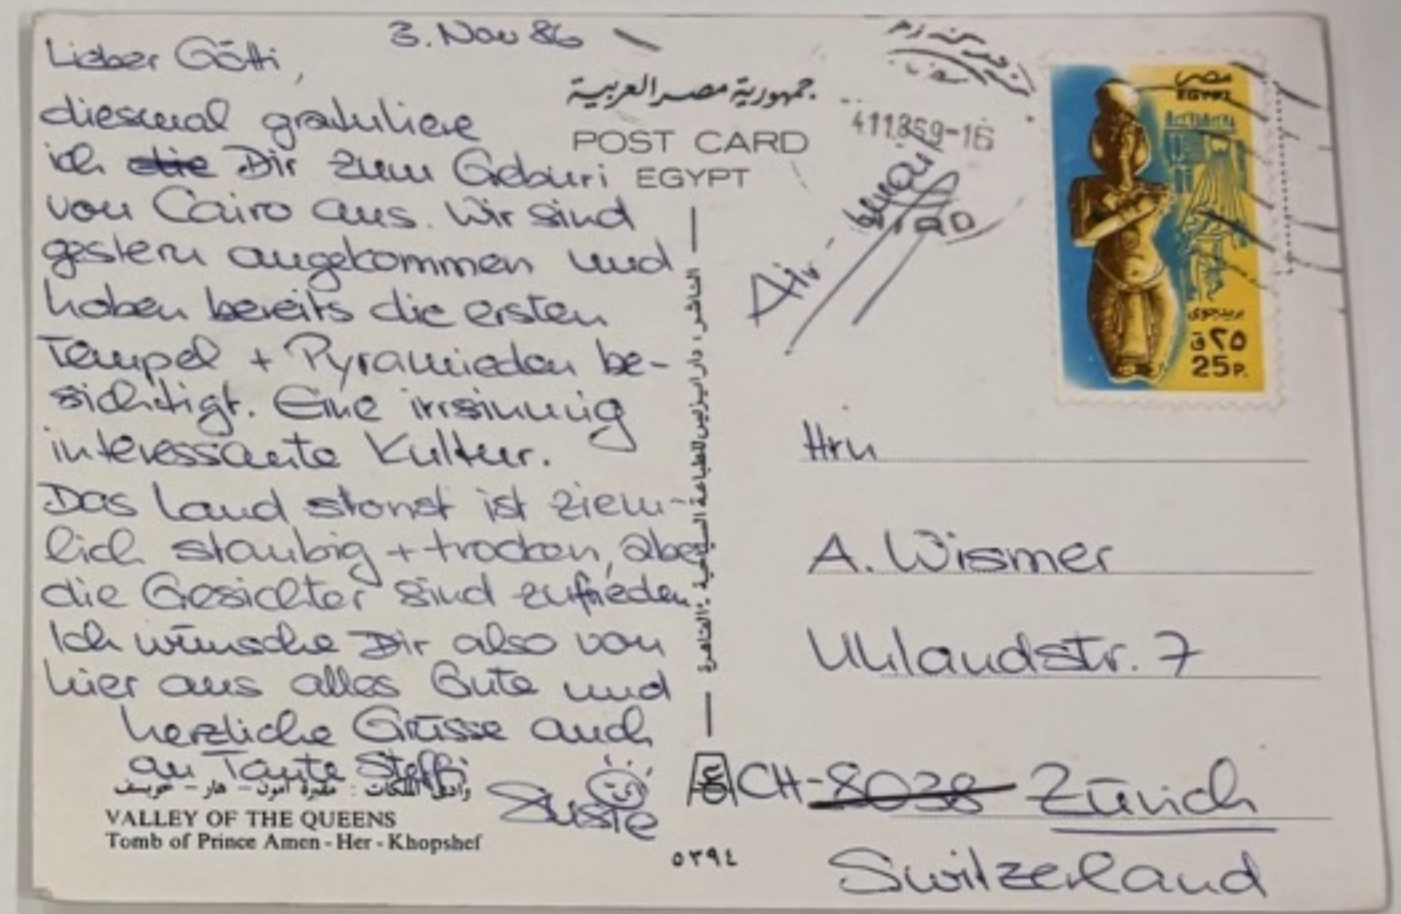 3. Nov 86
Lieber Götti,
diesmal gratuliere
ich die Dir zum Geburi
von Cairo aus. Wir sind
gestern angekommen und
haben bereits die ersten
Tempel + Pyramieden be-
sichtigt. Eine irrsinnig
interessante Kultur.
Das Land stonst ist ziem-
lich staubig + trocken, aber
die Gesichter sind zufrieden.
Ich wünsche Dir also von
hier aus alles Gute und
herzliche Grüsse auch
an Tante Steffi
Susie
وادى الملكات : مقبرة أمون - هار - خوبسف
VALLEY OF THE QUEENS
Tomb of Prince Amen - Her - Khopshef
جمهورية مصر العربية
POST CARD
EGYPT
الناشر : دار
للطباعة السياحية : القاهرة
٥٣٩٤
4.11.86 9-16
Air-
مصر
EGYPT
بريد جوى
٢٥ ق
25 P.
Hrn
A. Wismer
Uhlandstr. 7
CH-8038 Zürich
Switzerland